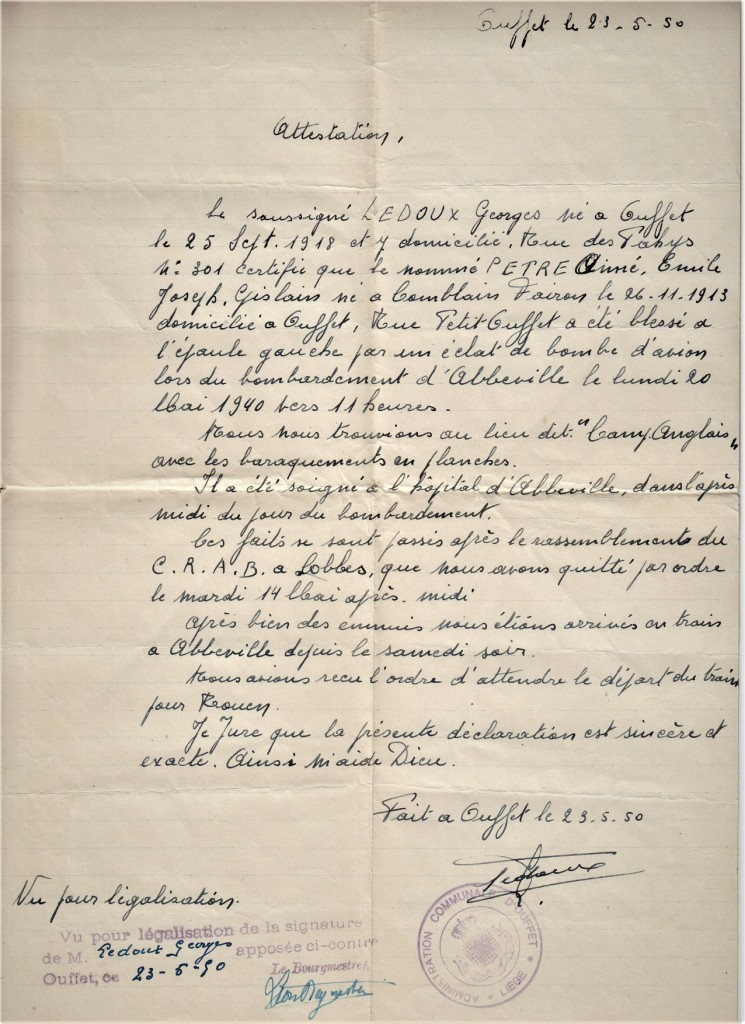 Ouffet le 23-5-50
Attestation,
Le soussigné LEDOUX Georges né a Ouffet
le 25 Sept. 1918 et y domicilié, Rue des Pahys
N° 301 certifie que le nommé PETRE Aimé, Emile
Joseph, Gislain né a Comblain Fairon le 26-11-1913
domicilié a Ouffet, Rue Petit-Ouffet a été blessé a
l'épaule gauche par un éclat de bombe d'avion
lors du bombardement d'Abbeville le lundi 20
Mai 1940 vers 11 heures.
Nous nous trouvions au lieu dit. "Camp. Anglais"
avec les baraquements en planches.
Il a été soigné a l'hôpital d'Abbeville, dans l'après
midi du jour du bombardement.
Ces faits se sont passis après le rassemblement du
C. R. A. B. a Lobbes, que nous avons quitté par ordre
le mardi 14 Mai après-midi
Après bien des ennuis nous étions arrivés en train
a Abbeville depuis le samedi soir.
Nous avions recu l'ordre d'attendre le départ du train
pour Rouen.
Je Jure que la présente déclaration est sincère et
exacte. Ainsi m'aide Dieu.
Fait a Ouffet le 23-5-50
Vu pour légalisation.
Vu pour légalisation de la signature
de M. Ledoux Georges apposée ci-contre
Ouffet, ce 23-5-50 Le Bourgmestre,
ADMINISTRATION COMMUNALE D'OUFFET
LIÈGE